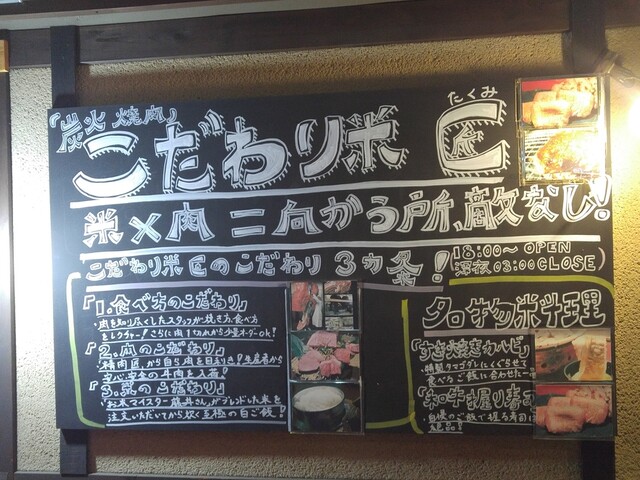 「炭火 焼肉」
たくみ
こだわり米 匠
米×肉 ニ向かう所、敵なし!
こだわり米匠のこだわり 3カ条!
18:00〜 OPEN
深夜 03:00 CLOSE)
「1.食べ方のこだわり」
・肉を知り尽くしたスタッフが焼き方、食べ方
をレクチャー!さらに肉1切れから少量オーダーok!
「2.肉のこだわり」
・精肉匠、から自ら肉を目利き!生産者から
安心安全の牛肉を入荷!
「3.米のこだわり」
・お米マイスター藤井さんがブレンドした米を
注文いただいてから炊く至極の白ご飯!
名物米料理
「すき焼きカルビ」
・特製タマゴダレにくぐらせて
食べたらご飯に合わせた一
「和牛握り寿
・自慢のご飯で握る寿司は
絶品!